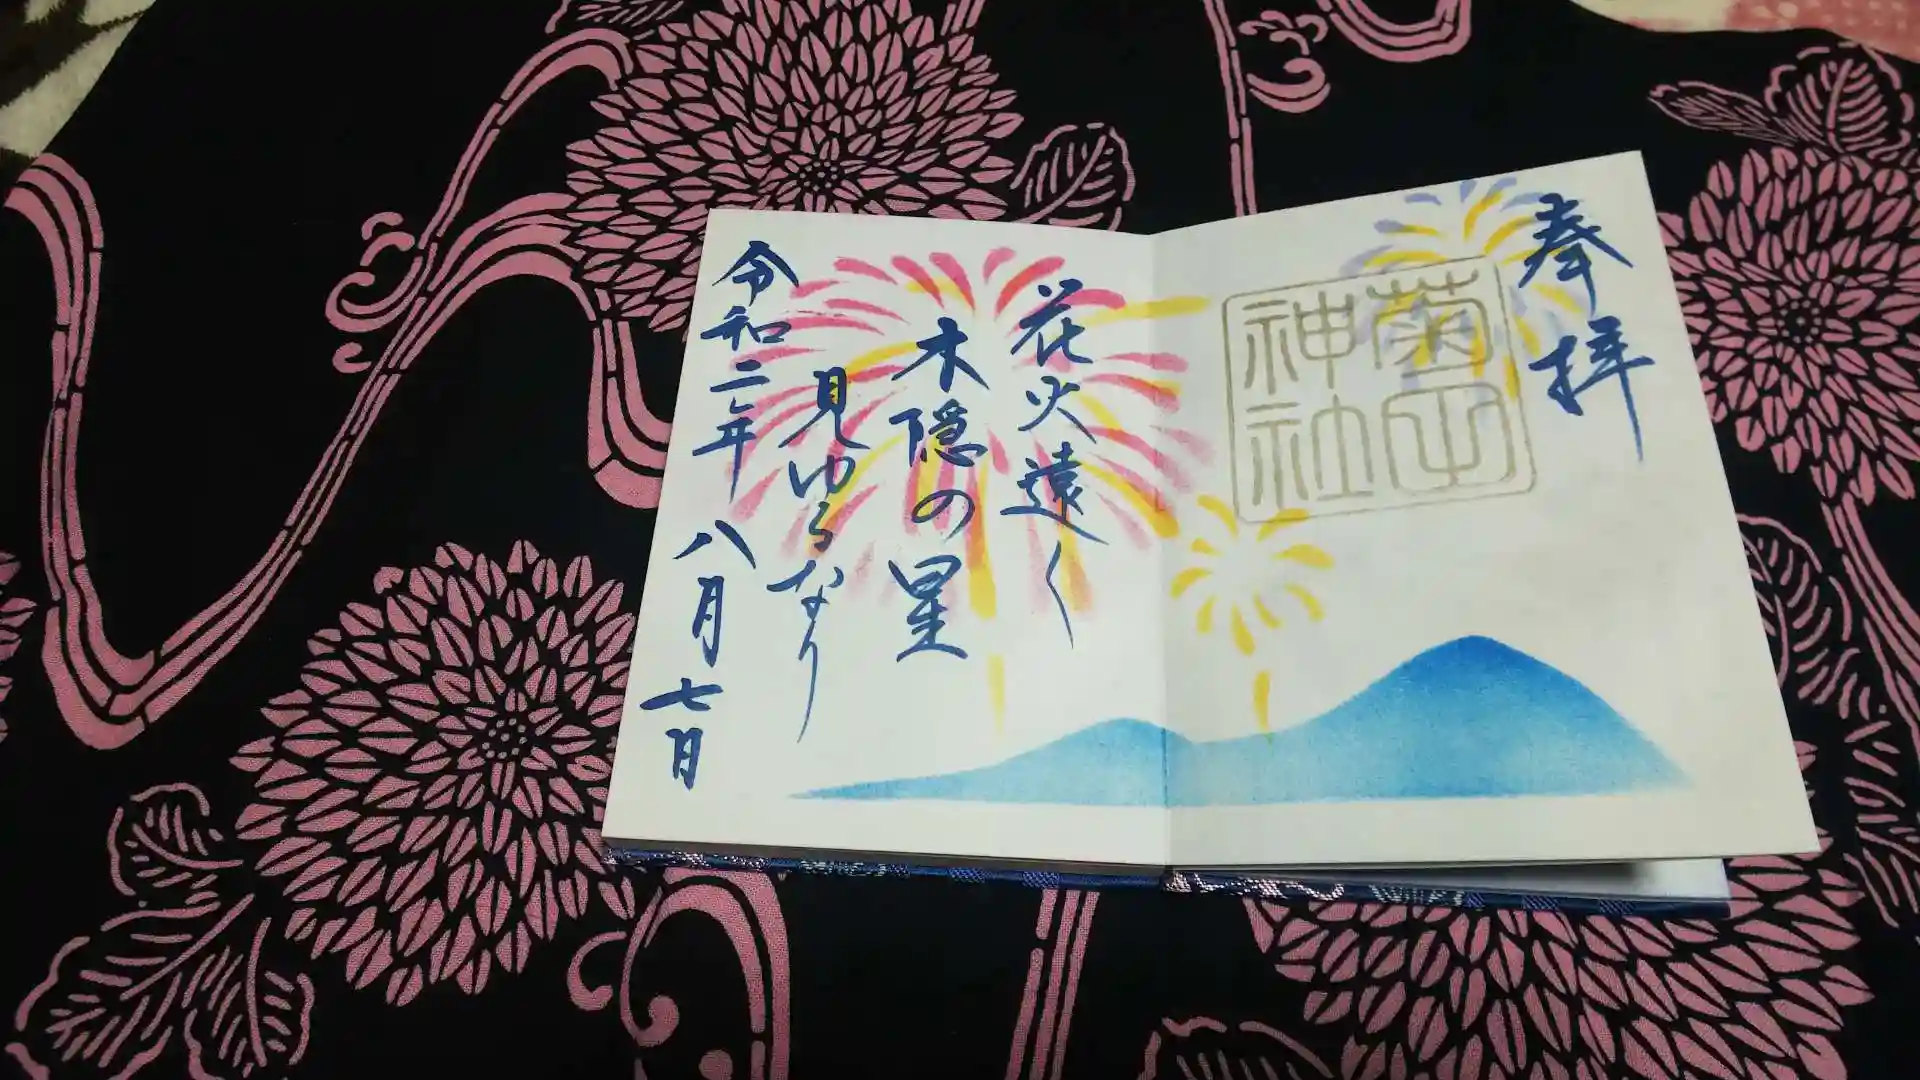 奉拝
菊田
神社
花火遠く
木隠の星
見ゆるなり
令和二年 八月 七日